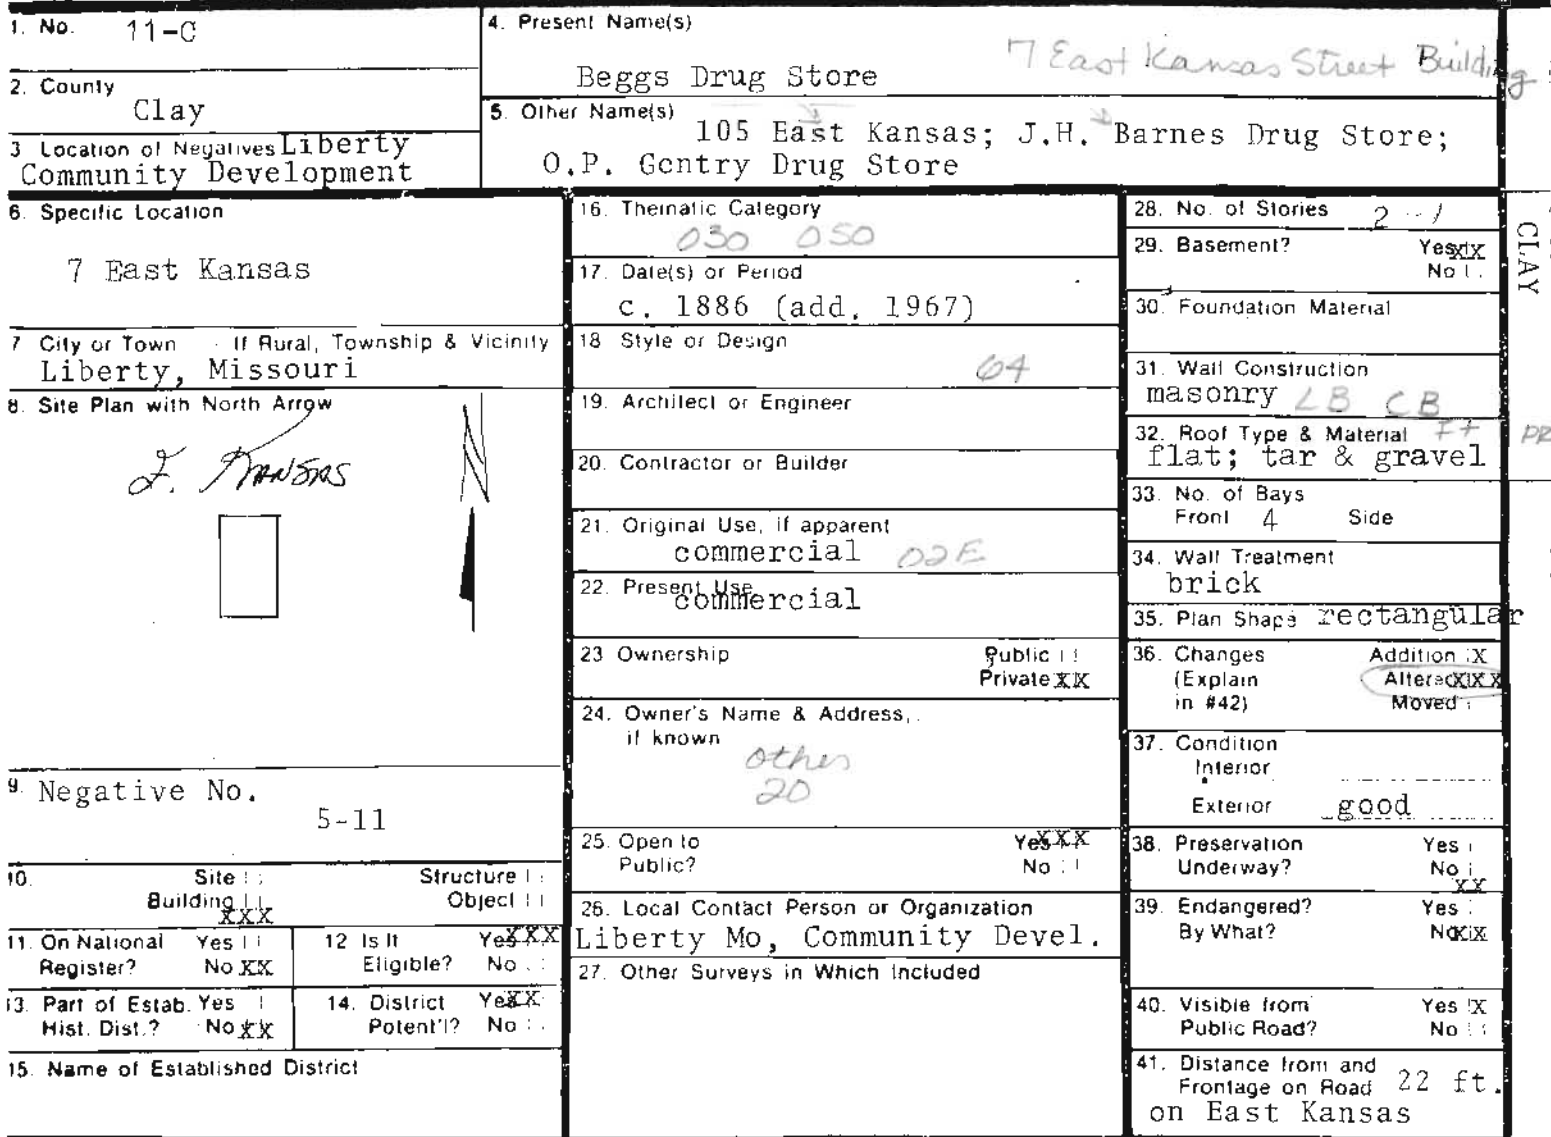 1. No. 11-C
2. County
Clay
3 Location of Negatives Liberty
Community Development
4. Present Name(s)
7 East Kansas Street Building
Beggs Drug Store
5. Other Name(s)
105 East Kansas; J.H. Barnes Drug Store;
O.P. Gentry Drug Store
6. Specific Location
7 East Kansas
7 City or Town If Rural, Township & Vicinity
Liberty, Missouri
8. Site Plan with North Arrow
E. KANSAS
N
9. Negative No.
5-11
10. Site Structure
Building XXX Object
11. On National Yes
Register? No XX
12 Is It Yes XXX
Eligible? No
13. Part of Estab. Yes
Hist. Dist.? No XX
14. District Yes XX
Potent'l? No
15. Name of Established District
16. Thematic Category
030 050
17. Date(s) or Period
c. 1886 (add. 1967)
18 Style or Design
64
19. Architect or Engineer
20. Contractor or Builder
21. Original Use, if apparent
commercial 02E
22. Present Use
commercial
23 Ownership Public
Private XX
24. Owner's Name & Address,
if known
other
20
25. Open to Yes XXX
Public? No
26. Local Contact Person or Organization
Liberty Mo, Community Devel.
27. Other Surveys in Which Included
28. No. of Stories 2-1
29. Basement? Yes XX
No
30. Foundation Material
31. Wall Construction
masonry LB CB
32. Roof Type & Material FT PR
flat; tar & gravel
33. No. of Bays
Front 4 Side
34. Wall Treatment
brick
35. Plan Shape rectangular
36. Changes Addition X
(Explain Altered XXX
in #42) Moved
37. Condition
Interior
Exterior good
38. Preservation Yes
Underway? No XX
39. Endangered? Yes
By What? No XX
40. Visible from Yes X
Public Road? No
41. Distance from and
Frontage on Road 22 ft.
on East Kansas
CLAY